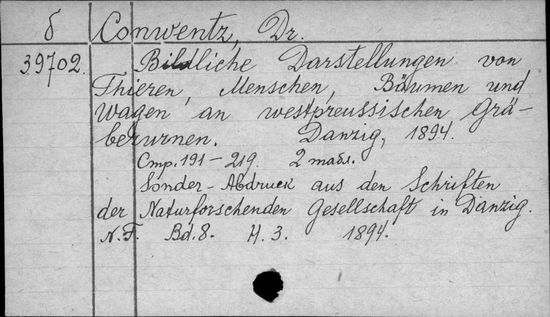 б Conwentz, Dr.
39702. Bildliche Darstellungen von
Thieren, Menschen, Bäumen und
Wagen an westpreussischen Grä-
berurnen. Danzig, 1894.
Стр. 191-219. 2 табл.
Sonder-Abdruck aus den Schriften
der Naturforschenden Gesellschaft in Danzig.
N.F. Bd.8. H.3. 1894.